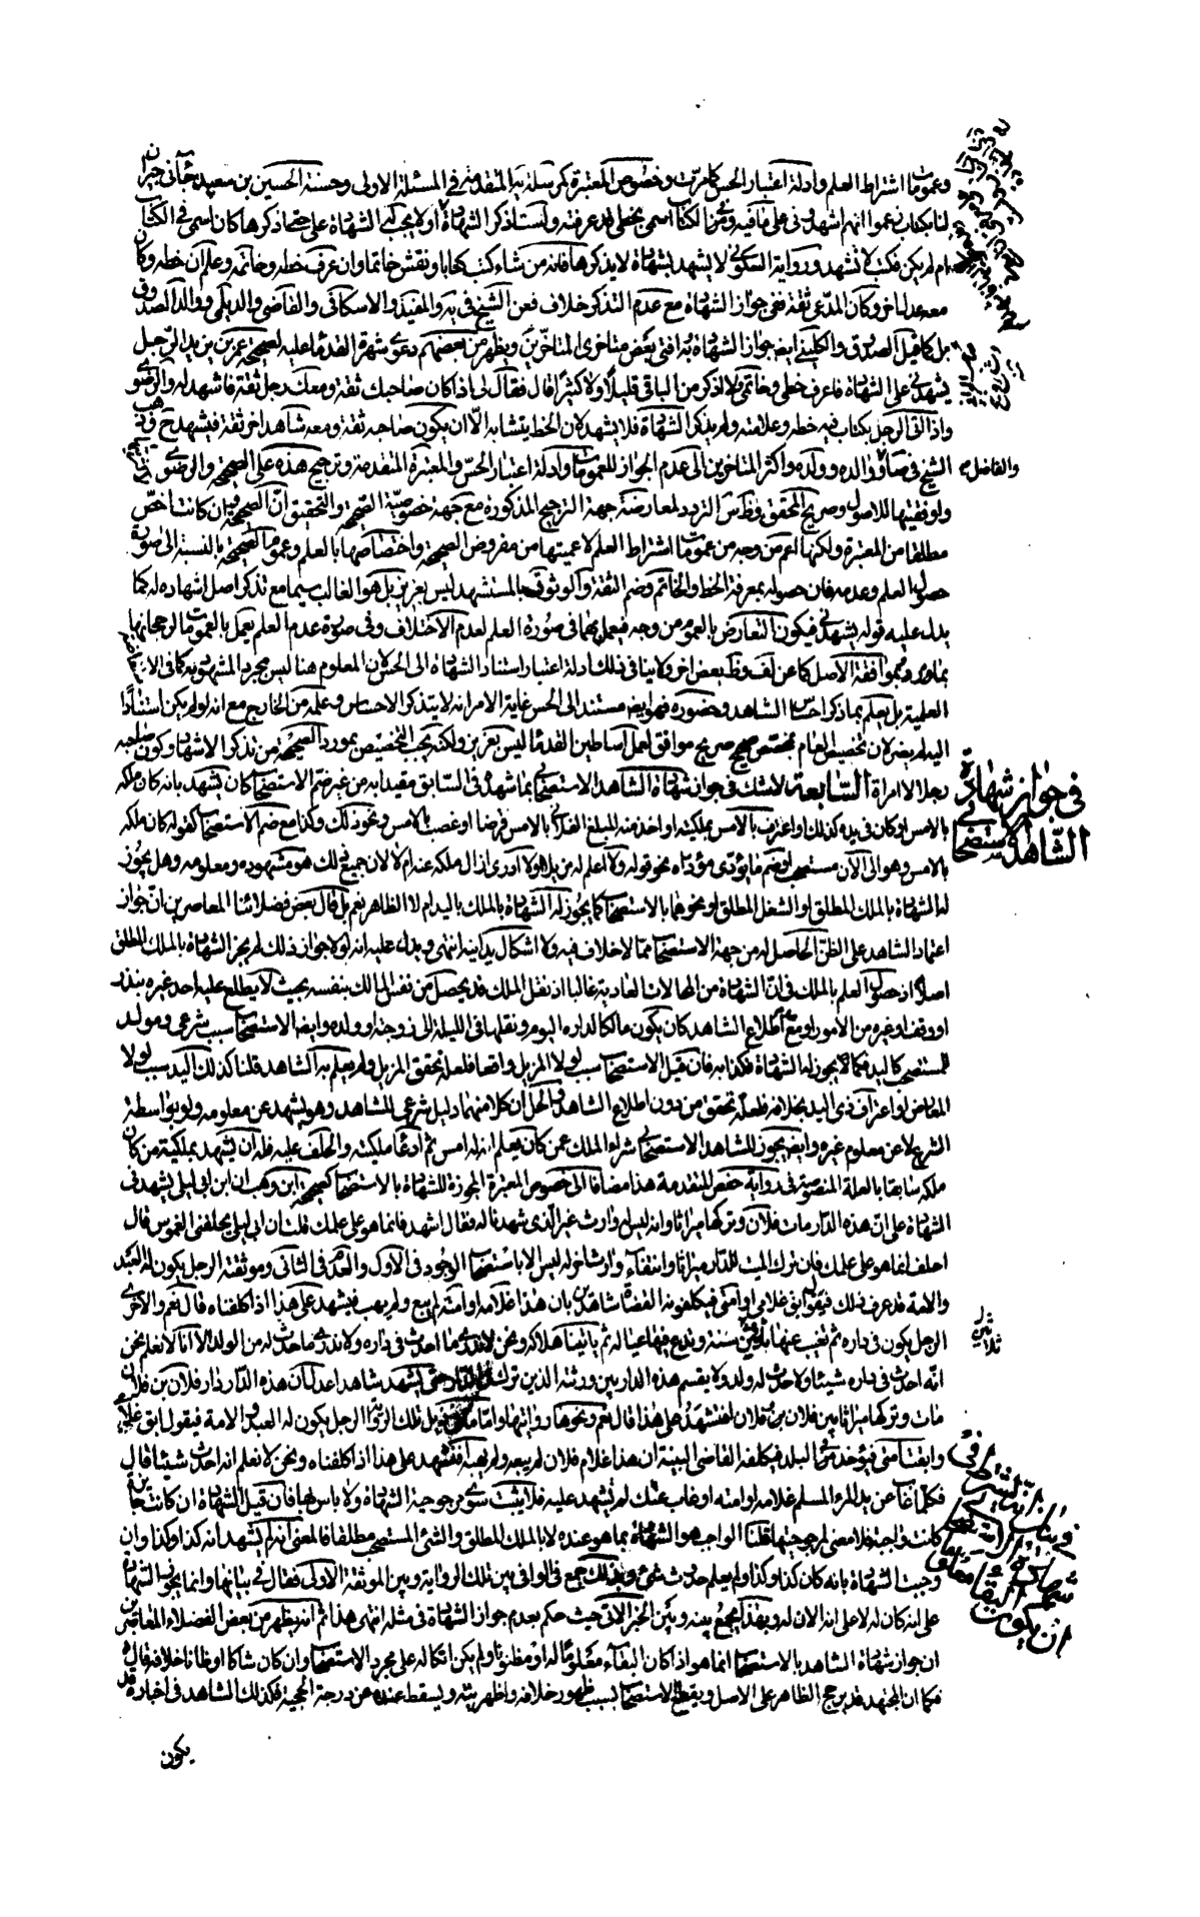 وعمومات اشتراط العلم وادلة اعتبار الحس كما مرّت وخصوص المعتبرة كمرسلة يه المتقدمة في المسئلة الاولى وحسنة الحسين بن سعيد جائنى جيران
لنا بكتاب زعموا انهم اشهدونى على ما فيه وفى الكتاب اسمى بخطى قد عرفته ولست اذكر الشهادة اولا يجب الشهادة على حتى اذكرها كان اسمى فى الكتاب
ام لم يكن فكتب لا تشهد ورواية السكونى لا يشهد بشهادة لا يذكرها فانه من شاء كتب كتابا ونقش خاتما وان عرف خطه وخاتمه وعلم ان خطه وكان
معه عدل اخر وكان المدعى ثقة ففى جواز الشهادة مع عدم التذكر خلاف فعن الشيخ فى يه والمفيد والاسكافى والقاضى والديلمى ووالد الصدوق
بل كما قيل الصدوق والكلينى ايضا جواز الشهادة به افتى بعض متاخرى المتاخرين ويظهر من بعضهم دعوى شهرة القدماء عليه لصحيحة عمر بن يزيد الرجل
يشهدنى على الشهادة فاعرف خطى وخاتمى ولا اذكر من الباقى قليلا ولا كثيرا قال فقال لى اذا كان صاحبك ثقة ومعك رجل ثقة فاشهد له والرضوى
واذا اتى الرجل بكتاب فيه خطه وعلامته ولم يذكر الشهادة فلا يشهد لان الخط يتشابه الّا ان يكون صاحبه ثقة ومعه شاهد اخر ثقة فيشهد ح وذهب
والفاضل الشيخ فى صا ووالده وولده واكثر المتاخرين الى عدم الجواز للعمومات وادلة اعتبار الحسّ والمعتبرة المتقدمة وترجيح هذه على الصحيحة والرضوى
ولموفقيتها للاصول وصريح المحقق وظ س التردد لمعارضة جهة الترجيح المذكورة مع جهة خصوصية الصحيحة والتحقيق انّ الصحيحة وان كانت اخصّ
مطلقا من المعتبرة ولكنها اعم من وجه من عمومات اشتراط العلم لاعميتها من مفروض الصحيحة واختصاصها بالعلم وعموم الصحيحة بالنسبة الى صورة
حصول العلم وعدمه فان حصوله بمعرفة الخط والخاتم وضم الثقة والوثوق بالمستشهد ليس بعزيز بل هو الغالب سيما مع تذكر اصل اشهاده له كما
يدل عليه قوله يشهدنى فيكون التعارض بالعموم من وجه فيعمل بهما فى صورة العلم لعدم الاختلاف وفى صورة عدم العلم يعمل بالعمومات لرجحانها
بما مر وبموافقة الاصل كما عن لف وظ بعض اخر ولا ينافى ذلك ادلة اعتبار استناد الشهادة الى الحس لان المعلوم هنا ليس مجرد المشهود به كما فى
العلمية بل يعلم بما ذكر احساس الشاهد وحضوره فهو ايضا مستند الى الحس غاية الامر انه لا يتذكر الاحساس وعلمه من الخارج مع انه لو لم يكن استنادا
اليه لم يضر لان تخصيص العام بمخصص صحيح صريح موافق لعمل اساطين القدماء ليس بعزيز ولكنه يجب التخصيص بمورد الصحيحة من تذكر الاشهاد وكون صاحبه
رجلا لا امراة السابعة لا شك فى جواز شهادة الشاهد الاستصحابى بما شهده فى السابق مقيدا به من غير ضم الاستصحاب كان يشهد بانه كان ملكه
بالامس او كان فى يده كذلك او اعترف بالامس بملكيته او اخذ منه المبلغ الفلانى بالامس قرضا او غصب بالامس ونحو ذلك وكذا مع ضم الاستصحاب كقوله كان ملكه
بالامس وهو الى الآن مستصحب او ضم ما يؤدى مؤداه نحو قوله ولا اعلم له مزيلا او لا ادرى ازال ملكه عنه ام لا لان جميع ذلك هو مشهوده ومعلومه وهل يجوز
له الشهادة بالملك المطلق او الشغل المطلق او نحوهما بالاستصحاب كما يجوز له الشهادة بالملك باليد ام لا الظاهر نعم بل قال بعض فضلائنا المعاصرين انّ جواز
اعتماد الشاهد على الظنّ الحاصل له من جهة الاستصحاب ممّا لا خلاف فيه ولا اشكال يدانيه انتهى ويدل عليه انه لولا جواز ذلك لم يجز الشهادة بالملك المطلق
اصلا اذ حصول العلم بالملك فى انّ الشهادة من المحالات العادية غالبا اذ نقل الملك قد يحصل من نقل المالك بنفسه بحيث لا يطلع عليه احد غيره بنذر
او وقف او غيره من الامور او مع اطّلاع الشاهد كان يكون مالكا لداره اليوم ونقلها فى الليلة الى زوجته او ولده وايضا الاستصحاب سبب شرعى ومولد
للمستصحب كاليد فكما يجوز له الشهادة فكذا به فان قيل الاستصحاب سبب لولا المزيل واقعا فلعله تحقق المزيل ولم يعلم به الشاهد قلنا كذلك اليد سبب لولا
المعارض او اعتراف ذى اليد بخلافه فلعله تحقق من دون اطلاع الشاهد والحل ان كلا منهما دليل شرعى للشاهد وهو يشهد عن معلومه ولو بواسطة
الشرع لا عن معلوم غيره وايضا يجوز للشاهد الاستصحابى شراء الملك عمن كان يعلم انه له امس ثم ادعاء ملكيته والحلف عليه فله ان يشهد بملكية من كان
ملكه سابقا بالعلة المنصوصة فى رواية حفص المتقدمة هذا مضافا الى خصوص المعتبرة المجوزة للشهادة بالاستصحاب كصحيحة ابن وهب ان ابن ابى ليلى يشهدنى
الشهادة على انّ هذه الدار مات فلان وتركها ميراثا وانه ليس له وارث غير الّذى شهدنا له فقال اشهد فانما هو على علمك قلت ان ابن ابى ليلى يحلفنا الغموس قال
احلف انما هو على علمك فان ترك الميت للدار ميراثا وانتفاء وارث اخر له ليس الا باستصحاب الوجود فى الاول والعدم فى الثانى وموثقته الرجل يكون له العبد
والامة قد عرف ذلك فيقول ابق غلامى او امتى فيكلفونه القضاة شاهدين بان هذا غلامه او امته لم يبع ولم يهب فيشهد على هذا اذا كلفناه قال نعم والاخرى
الرجل يكون فى داره ثم تغيب عنها ثلثين سنة ويدع فيها عياله ثم ياتينا هلاكه ونحن لا ندرى ما احدث فى داره ولا ندرى ما حدث له من الولد الا انا لا نعلم نحن
انّه احدث فى داره شيئا ولا حدث له ولد ولا يقسم هذه الدار بين ورثته الذين ترك فى الدار حتى يشهد شاهدا عدل ان هذه الدار دار فلان بن فلان
مات وتركها ميراثا بين فلان وفلان افنشهد على هذا قال نعم ونحوها روايتها وامّا ما فى ذيل تلك الرواية الرجل يكون له العبد والامة فيقول ابق غلامى
وابقت امتى فيؤخذ فى البلد فيكلفه القاضى البينة ان هذا غلام فلان لم يبعه ولم يهبه أفنشهد على هذا اذا كلفناه ونحن لا نعلم انه احدث شيئا قال
فكلما غاب عن يد المرء المسلم غلامه او امته او غاب عنك لم تشهد عليه فلا يثبت سوى مرجوحية الشهادة ولا باس بها فان قيل الشهادة ان كانت جايزة
كانت واجبة فلا معنى لمرجوحيتها قلنا الواجب هو الشهادة بما هو عنده لا بالملك المطلق والشئ المستصحب مطلقا فالمعنى انه لم يشهد انه كذا وكذا وان
وجبت الشهادة بانه كان كذا وكذا ولم يعلم حدوث شئ وبذلك جمع فى الوافى بين تلك الرواية وبين الموثقة الاولى فقال فى بيانها وانما يجوز الشهادة
على انه كان له لا على انه الان له وبهذا يجمع بينه وبين الخبر الاتى حيث حكم بعدم جواز الشهادة فى مثله انتهى هذا ثم انه يظهر من بعض الفضلاء المعاصرين
ان جواز شهادة الشاهد بالاستصحاب انما هو اذا كان البقاء معلوما له او مظنونا ولم يكن اتكاله على مجرد الاستصحاب وان كان شاكا او ظانا خلافه قال
فكما ان المجتهد قد يرجح الظاهر على الاصل ويقطع الاستصحاب بسبب ظهور خلافه واظهريته ويسقط عنده عن درجة الحجية فكذلك الشاهد فى اخباره قد
يكون
فى جواز شهادة
الشاهد الاستصحابى